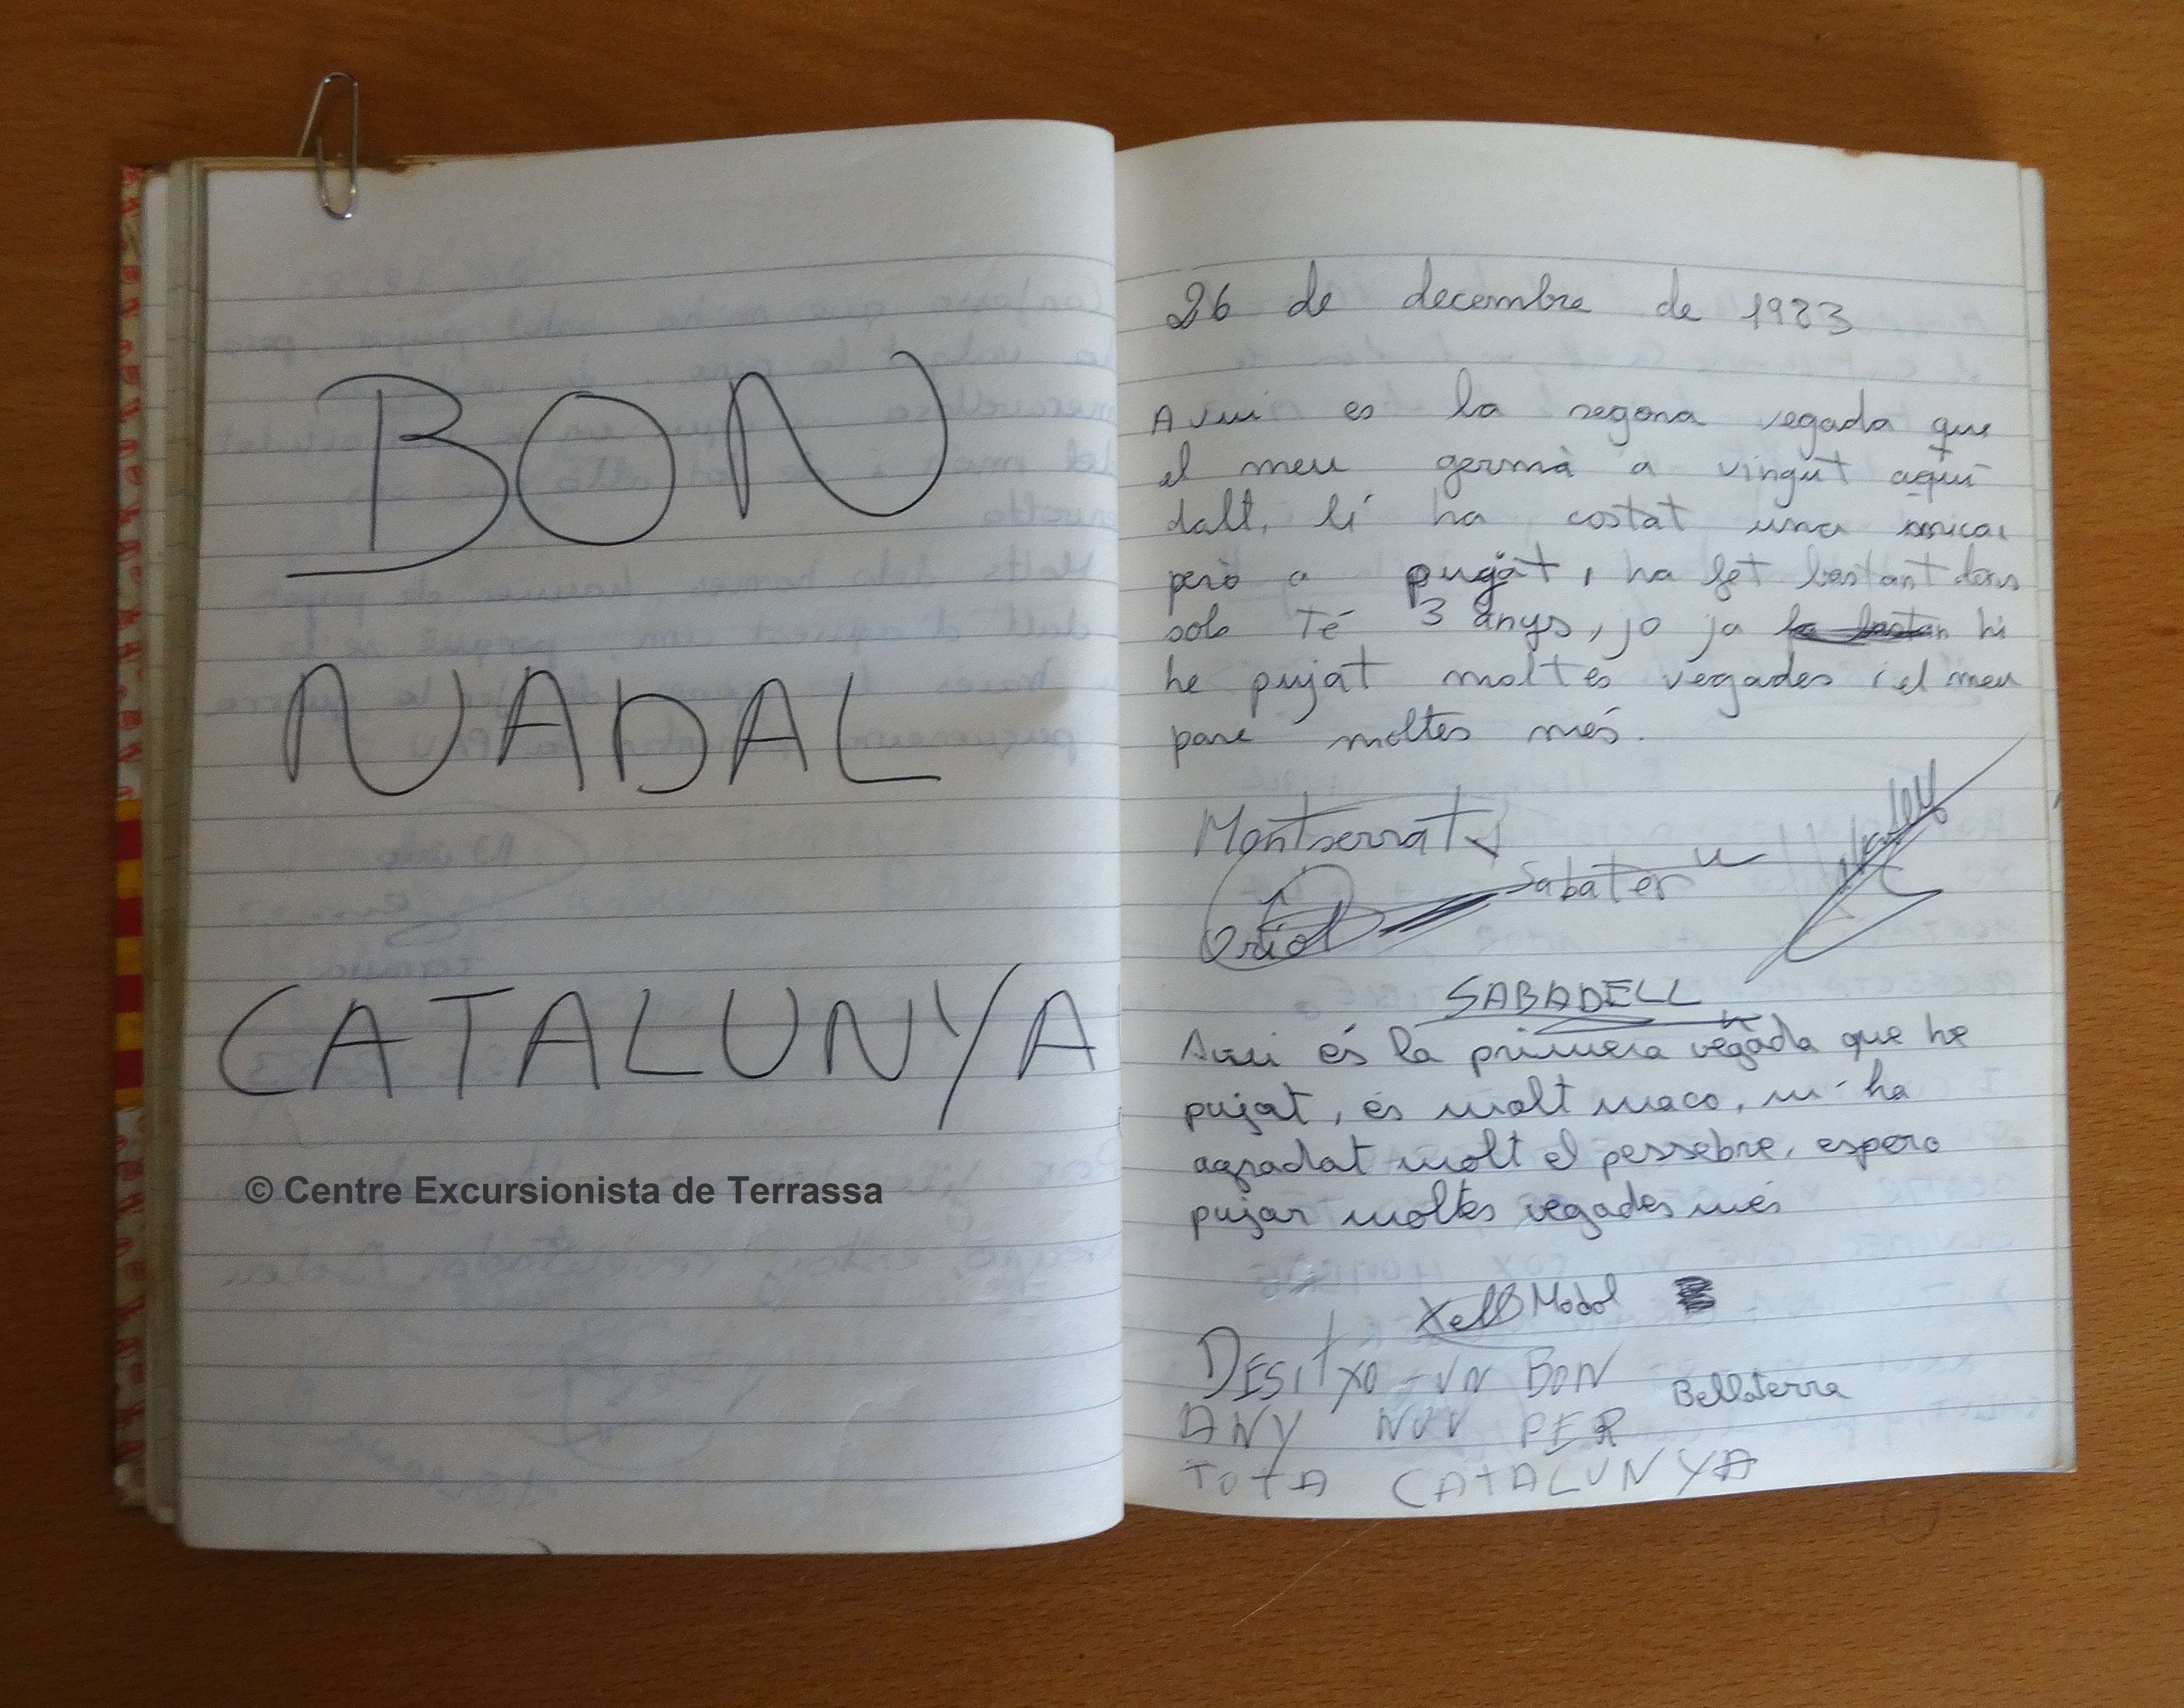 BON
NADAL
CATALUNYA
© Centre Excursionista de Terrassa
26 de decembre de 1983
Avui es la segona vegada que
el meu germà a vingut aquí
dalt, li ha costat una mica,
però a pujat, ha fet bastant doncs
sols Té 3 anys, jo ja hi
he pujat moltes vegades i el meu
pare moltes més.
Montserrat
Sabater
Oriol
SABADELL
Avui és la primera vegada que he
pujat, és molt maco, m'ha
agradat molt el pessebre, espero
pujar moltes vegades més
Xell Modol
DESITXO-UN BON
Bellaterra
ANY NOU PER
TOTA CATALUNYA